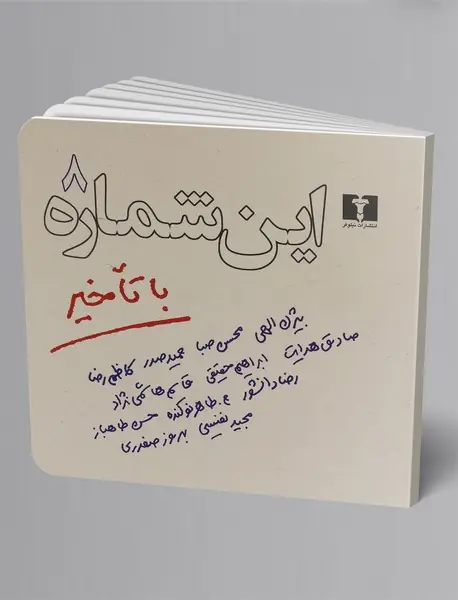 ۸
این شماره
انتشارات نیلوفر
با تأخیر
بیژن الهی محسن صبا حمید صدر کاظم رضا
صادق هدایت ابراهیم حقیقی قاسم هاشمی نژاد
رضا دانشور ع. طاهر نوکنده حسن طاهباز
مجید نفیسی بهروز صفدری